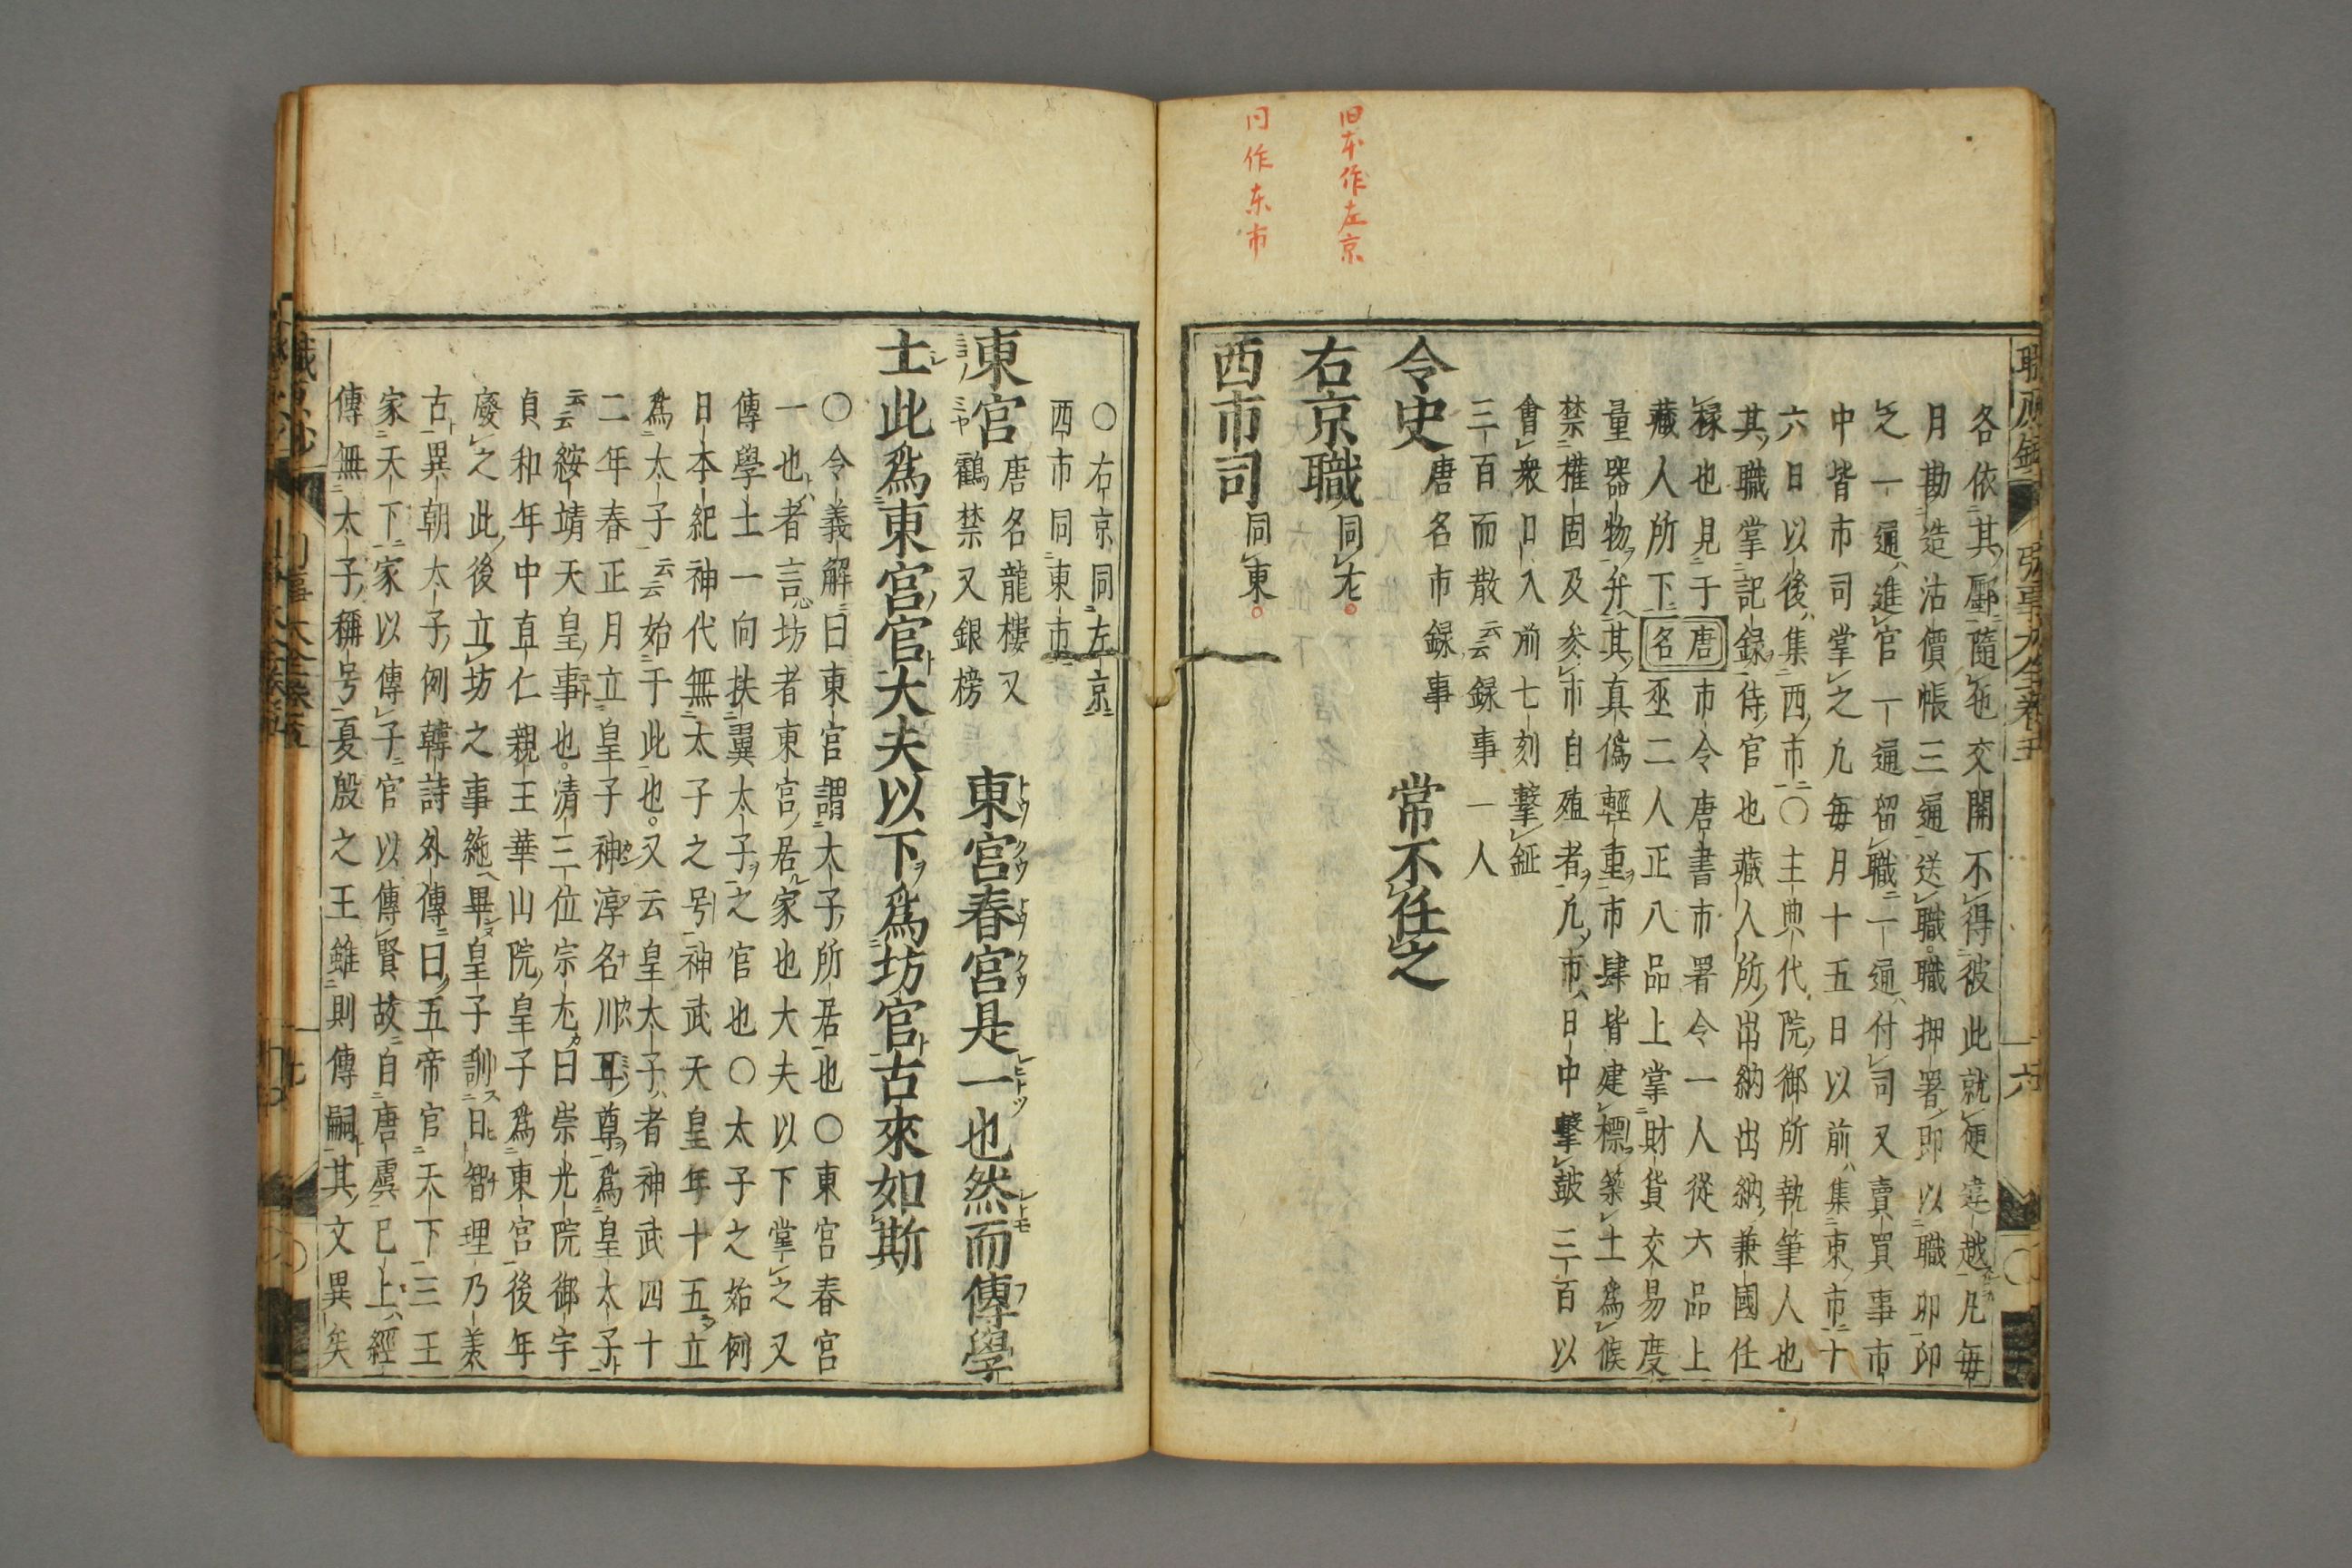 旧本作左京
同作东市
各依其鄽隨色交開不得彼此就便違越凡毎
月勘造沽價帳三通送職職押署即以職印印
之一通進官一通留職一通付司又賣買事市
中皆市司掌之凡毎月十五日以前集東市十
六日以後集西市〇主典代院御所執筆人也
其職掌記録侍官也藏人所出納出納兼國任
稼也見于唐市令唐書市署令一人從六品上
藏人所下名丞二人正八品上掌財貨交易度
量器物弁其真僞輕重市肆皆建標築土爲候
禁榷固及参市自殖者凡市日中擊皷三百以
會衆日入前七刻擊鉦
三百而散云云録事一人
令史唐名市録事 常不任之
右京職同左
西市司同東
〇右京同左京
西市同東市
東宮唐名龍樓又鶴禁又銀榜 東宮春宮是一也然而傳學
士此爲東宮官大夫以下爲坊官古來如斯
〇令義解曰東宮謂太子所居也〇東宮春宮
一也者言坊者東宮居家也大夫以下掌之又
傳學士一向扶翼太子之官也〇太子之始例
日本紀神代無太子之号神武天皇年十五立
爲太子云云始于此也又云皇太子者神武四十
二年春正月立皇子神渟名川耳尊爲皇太子
云云綏靖天皇事也清三位宗尤曰崇光院御宇
貞和年中直仁親王華山院皇子爲東宮後年
廢之此後立坊之事絁畢皇子訓日智理乃羡
古異朝太子例韓詩外傳曰五帝官天下三王
家天下家以傳子官以傳賢故自唐虞已上經
傳無太子稱号夏殷之王雖則傳嗣其文異矣